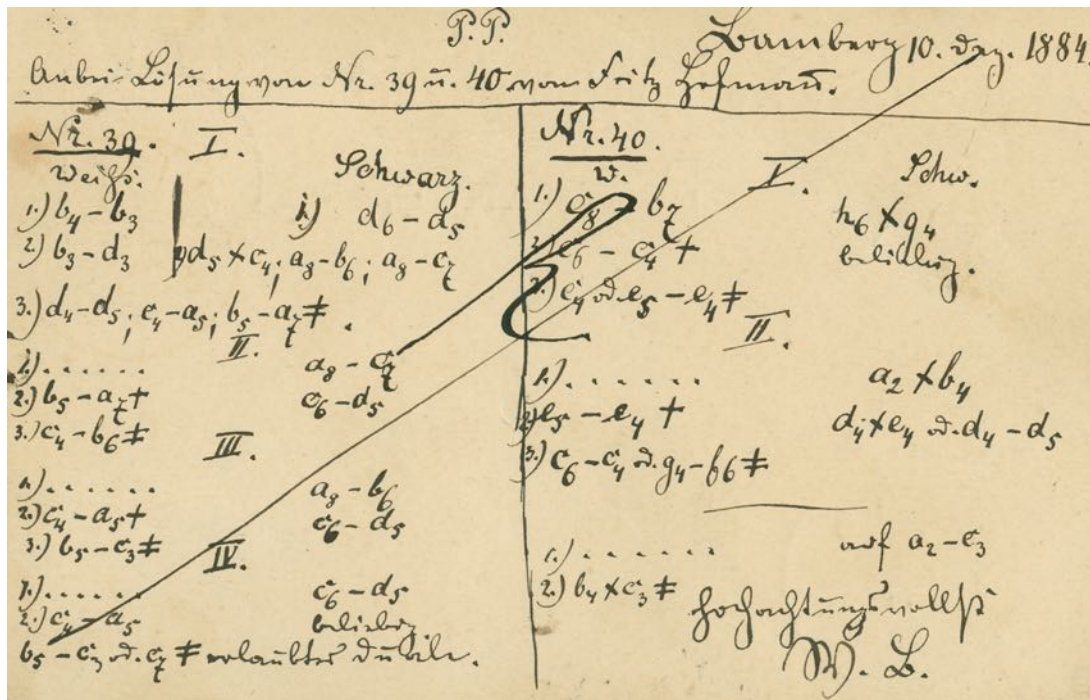 P. P.
Bamberg 10. Dez. 1884.
Anbei Lösung von Nr. 39 u. 40 von Fritz Hofmann.
Nr. 39. I.
Weiß. Schwarz.
1.) b4 – b3 1.) d6 – d5
2.) b3 – d3 2) d5 × c4; a8 – b6; a8 – c7
3.) d4 – d5; c4 – a5; b5 – a7 ‡.
II.
1.) . . . . . . a8 – c7
2.) b5 – a7 † c6 – d5
3.) c4 – b6 ‡
III.
1.) . . . . . . a8 – b6
2.) c4 – a5 † c6 – d5
3.) b5 – c3 ‡
IV.
1.) . . . . . c6 – d5
2.) c4 – a5 beliebig
b5 – c3 od. c7 ‡ erlaubter Duale.
Nr. 40. I.
W. Schw.
1.) c8 – b7 h6 × g4
2.) c6 – c4 † beliebig.
3.) c4 od. e5 – e4 ‡
II.
1.) . . . . . . a2 × b4
2) e5 – e4 † d4 × e4 od. d4 – d5
3.) c6 – c4 od. g4 – f6 ‡
1.) . . . . . . auf a2 – c3
2.) b4 × c3 ‡
Hochachtungsvollst
W. B.